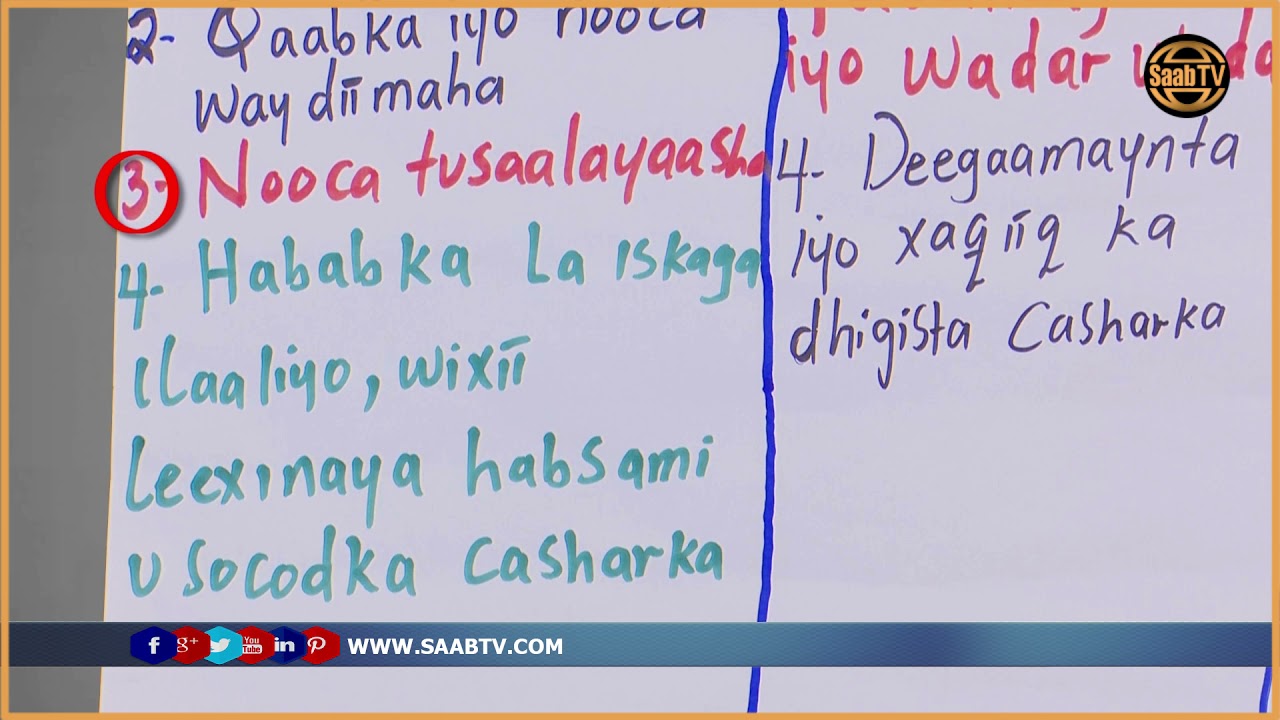 2- Qaabka iyo nooca
waydiimaha
3- Nooca tusaalayaasha
4- Hababka La iskaga
ilaaliyo, wixii
Leexinaya habsami
u socodka casharka
iyo wadar
4- Deegaamaynta
iyo xaqiiq ka
dhigista Casharka
SaabTV
f g+ You Tube in
WWW.SAABTV.COM